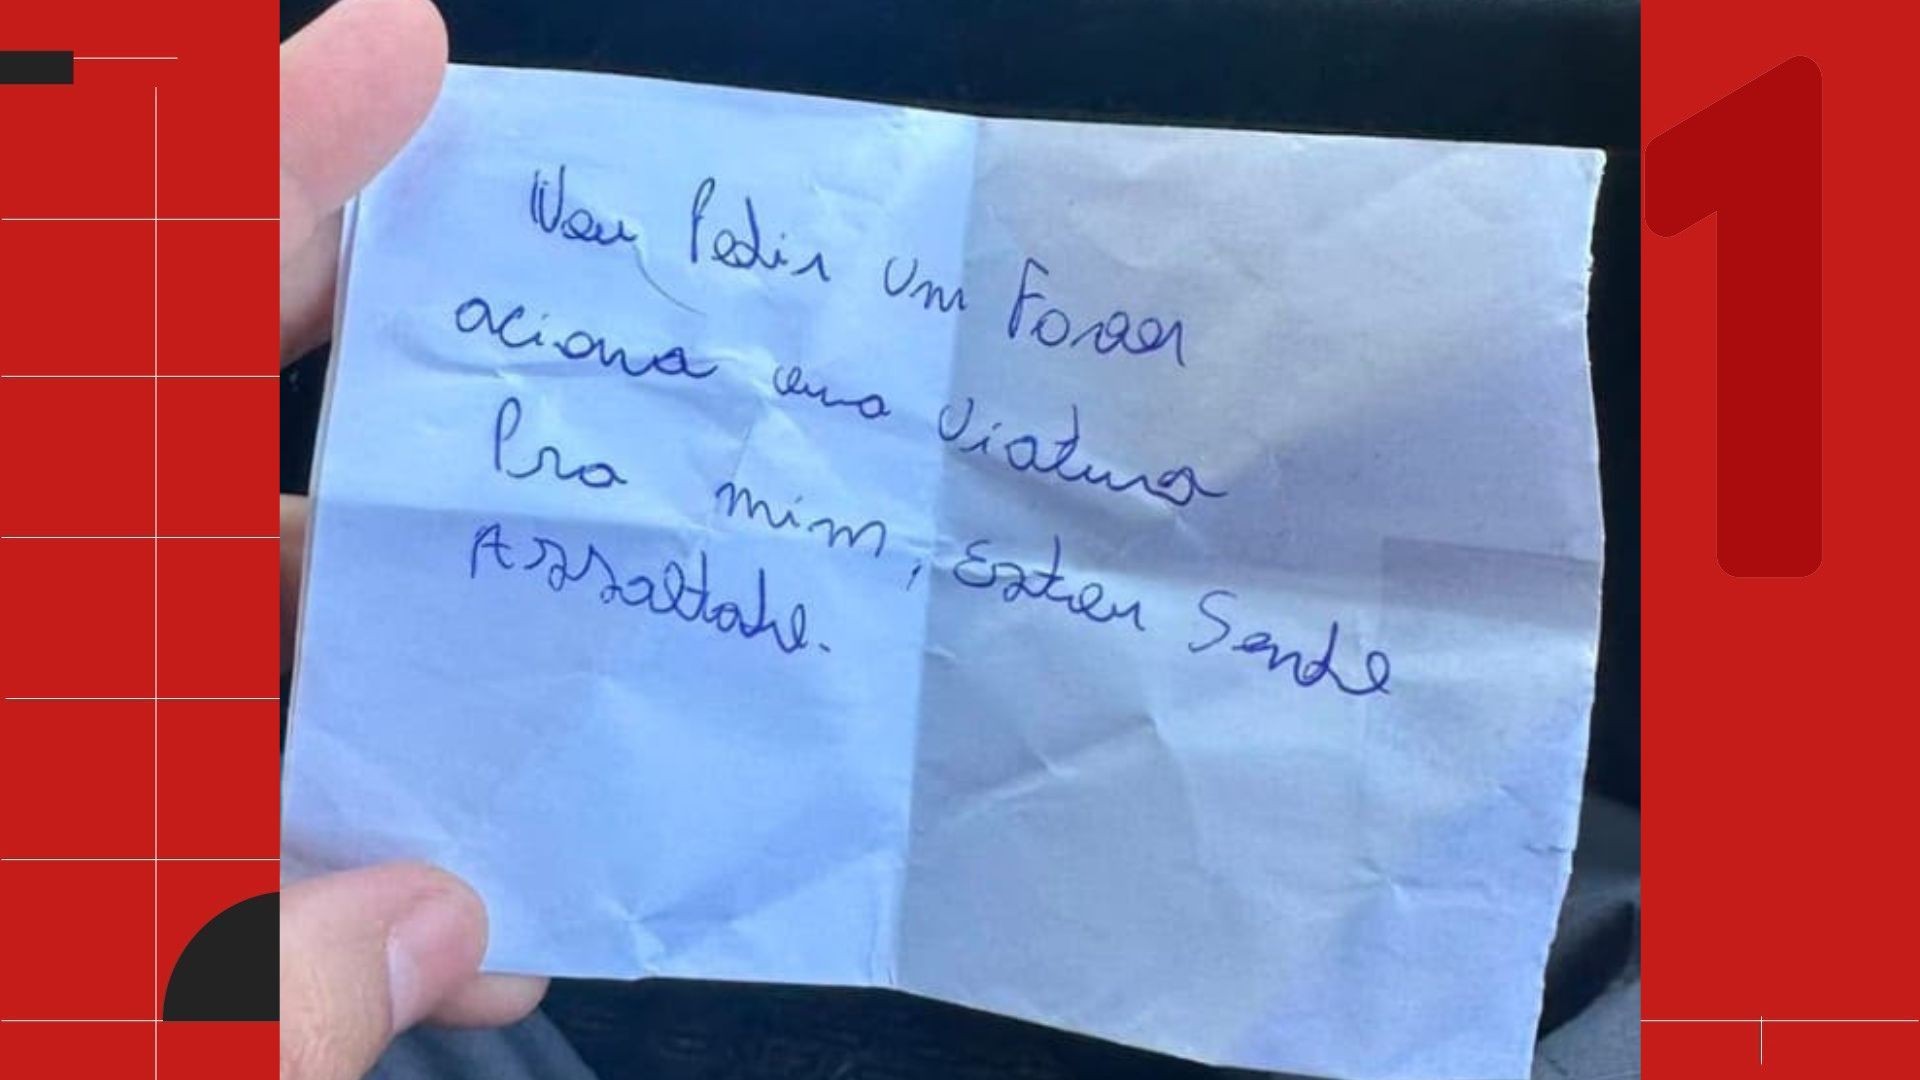 Vou Pedir um Favor
aciona uma viatura
Pra mim, Estou Sendo
Assaltado.
1